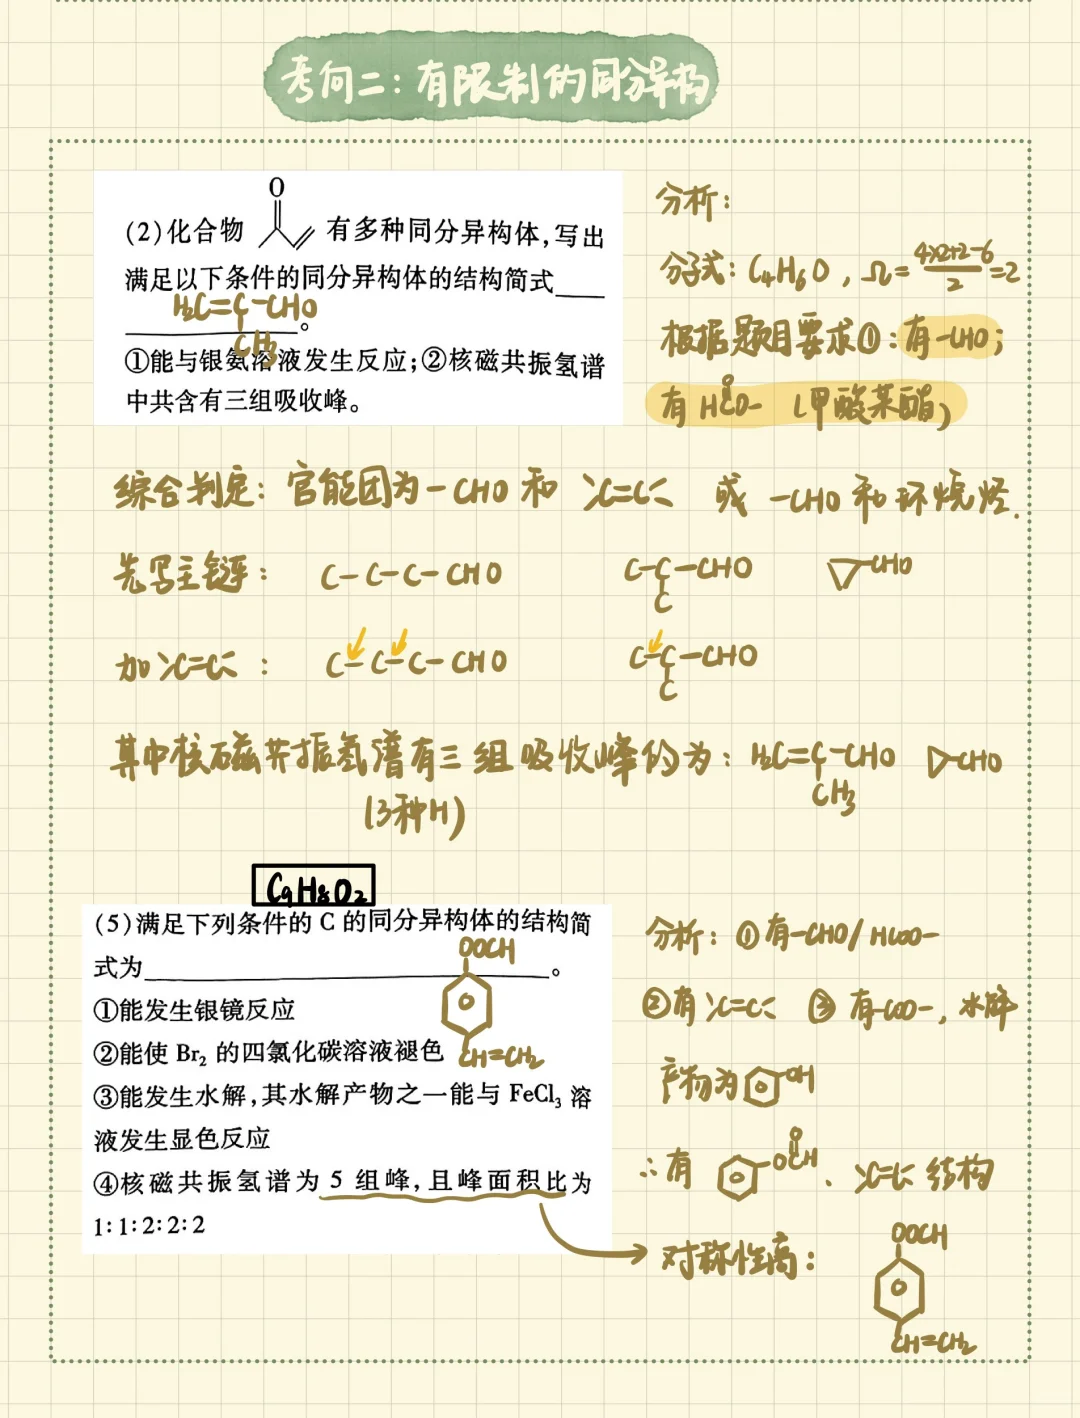 考向二:有限制的同分异构
O
(2)化合物 有多种同分异构体,写出
满足以下条件的同分异构体的结构简式____
H₂C=C-CHO
____________。
CH₃
①能与银氨溶液发生反应;②核磁共振氢谱
中共含有三组吸收峰。
分析:
分子式:C₄H₆O,Ω=(4×2+2-6)/2=2
根据题目要求①:有-CHO;
有HCOO-(甲酸某酯)
综合判定:官能团为-CHO和>C=C< 或 -CHO和环烷烃.
先写主链: C-C-C-CHO C-C-CHO CHO
C
加>C=C<: C-C-C-CHO C-C-CHO
C
其中核磁共振氢谱有三组吸收峰的为:H₂C=C-CHO CHO
(3种H) CH₃
C₉H₈O₂
(5)满足下列条件的 C 的同分异构体的结构简
OOCH
式为____________________。
①能发生银镜反应
②能使 Br₂ 的四氯化碳溶液褪色
CH=CH₂
③能发生水解,其水解产物之一能与 FeCl₃ 溶
液发生显色反应
④核磁共振氢谱为 5 组峰,且峰面积比为
1:1:2:2:2
分析:①有-CHO/HCOO-
②有>C=C< ③有-COO-,水解
产物为 OH
∴有 OCH、>C=C<结构
O
对称性高:
OOCH
CH=CH₂